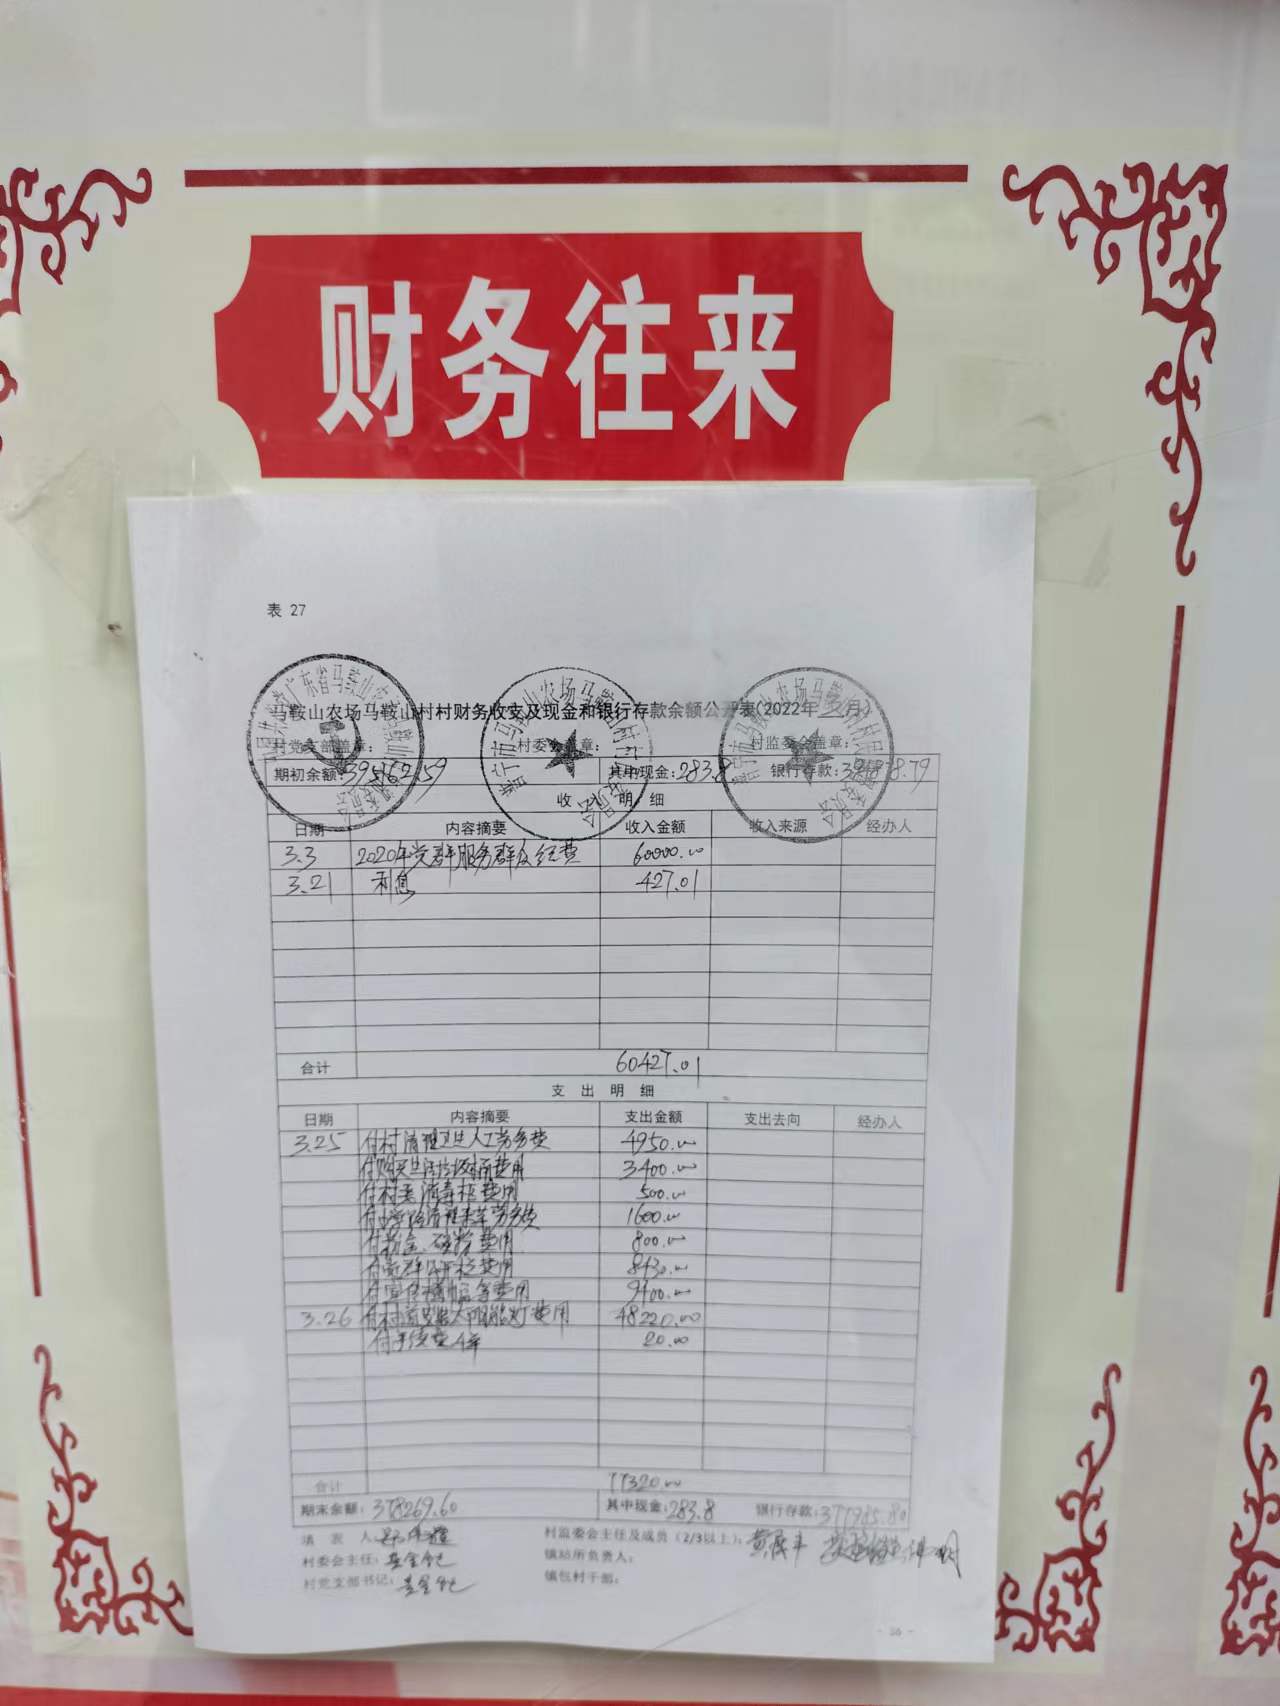 财务往来
表 27
马鞍山农场马鞍山村村财务收支及现金和银行存款余额公开表(2022年 月)
村党支部盖章： 村委会盖章： 村监委会盖章：
期初余额: 395162.59 其中现金:283.8 银行存款:394878.79
收 入 明 细
日期 内容摘要 收入金额 收入来源 经办人
3.3 2020年党群服务群众经费 60000.00
3.21 利息 427.01
合计 60427.01
支 出 明 细
日期 内容摘要 支出金额 支出去向 经办人
3.25 付村清理卫生人工劳务费 4950.00
付购买生活垃圾桶费用 3400.00
付村委消毒柜费用 500.00
劳务费 1600.00
费用 800.00
费用 8430.00
付宣传横幅等费用 9400.00
3.26 付村 安装太阳能灯费用 48220.00
付手续费4年 20.00
合计 77320.00
期末余额: 378269.60 其中现金:283.8 银行存款:377985.80
填 表 人: 村监委会主任及成员（2/3以上）:
村委会主任: 镇站所负责人:
村党支部书记: 镇包村干部:
- 36 -